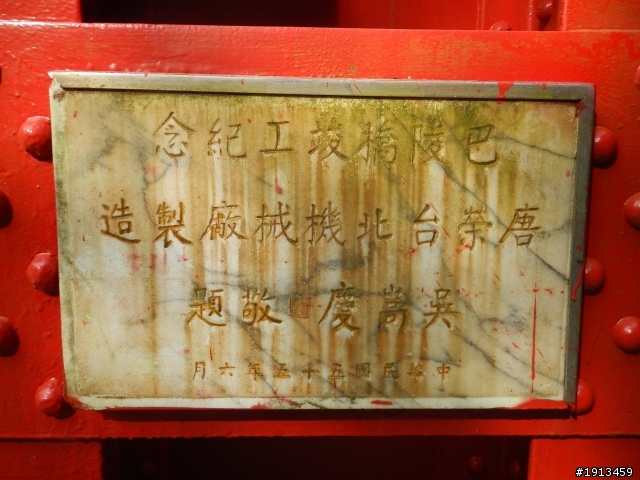 巴陵橋竣工紀念
唐榮台北機械廠製造
吳嵩慶敬題
中華民國五十五年六月
#1913459